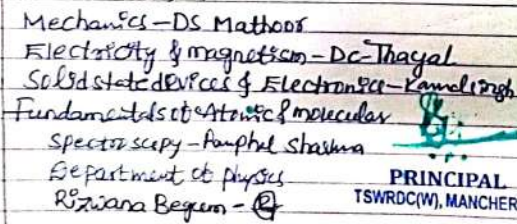 Mechanics-DS Mathoor
Electricity & magnetism-Dc-Thayal
Solid state devices & Electronics-Kamal singh
Fundamentals of Atomic & molecular
Spectroscopy-Banphel Sharma
Department of physics
Rizwana Begum-
PRINCIPAL
TSWRDC(W), MANCHER